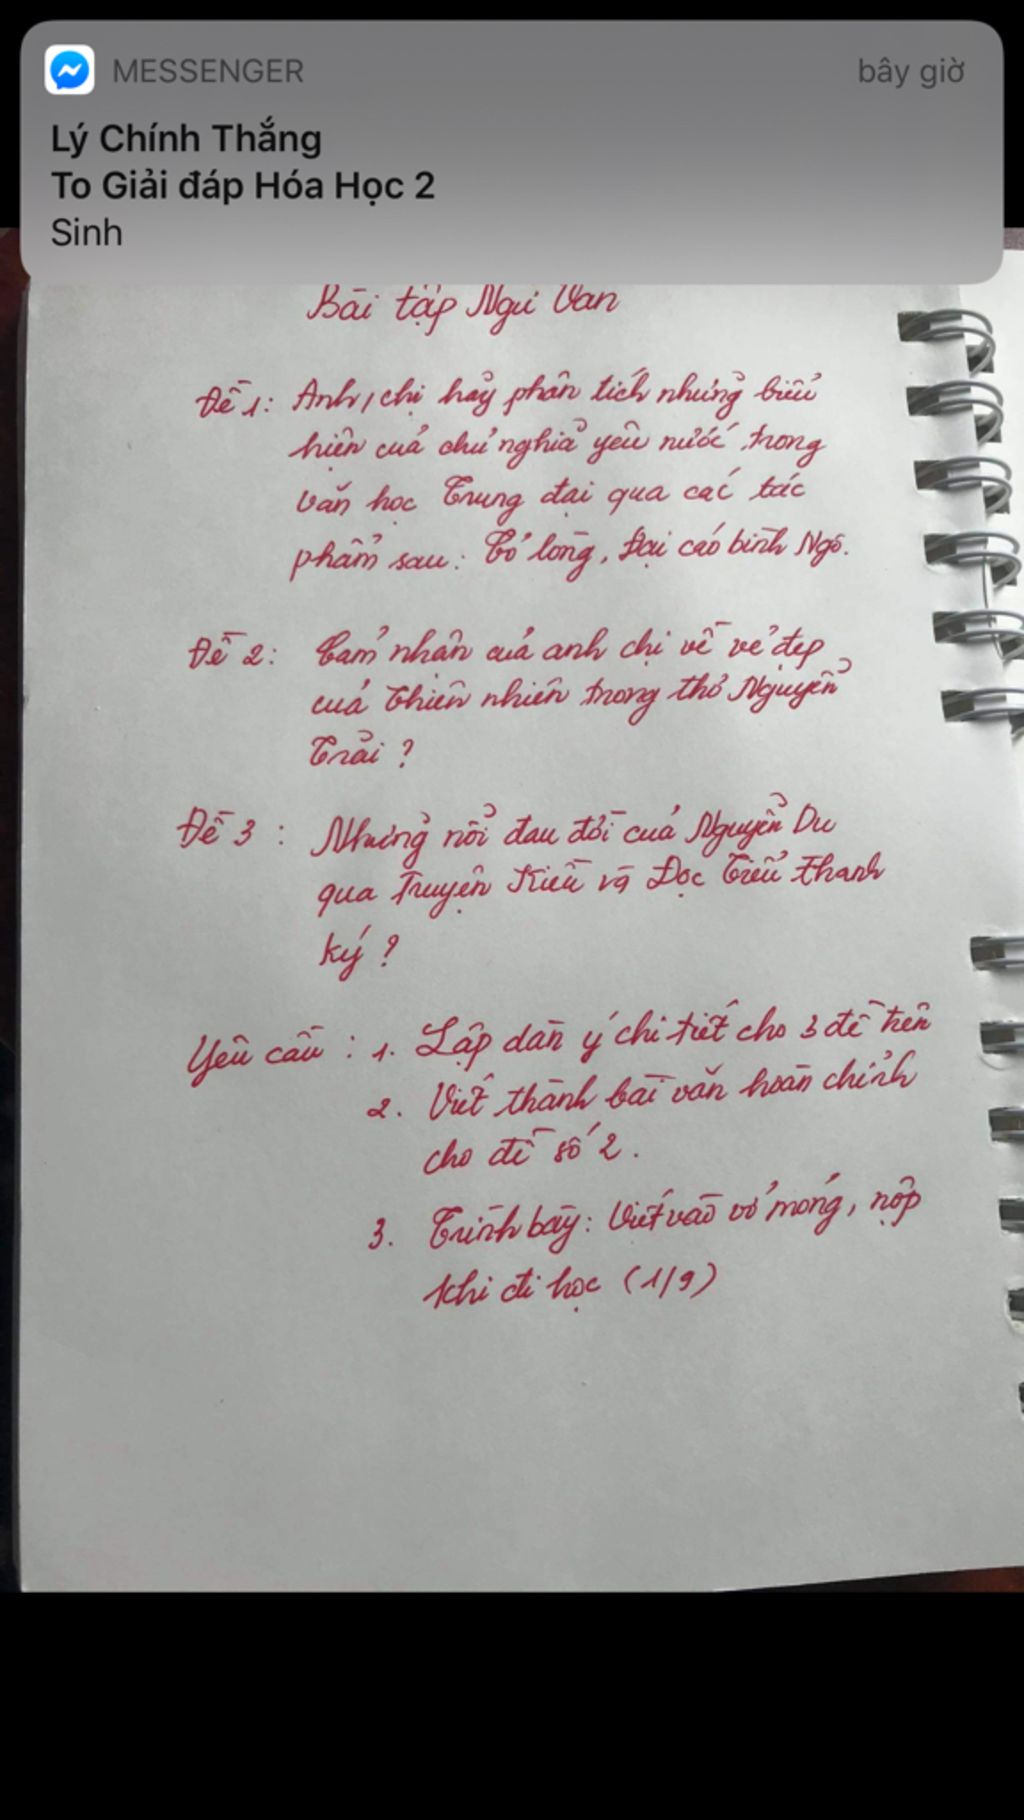 MESSENGER
bây giờ
Lý Chính Thắng
To Giải đáp Hóa Học 2
Sinh
Bài tập Ngữ Văn
Đề 1: Anh, chị hãy phân tích những biểu
hiện của chủ nghĩa yêu nước trong
văn học Trung đại qua các tác
phẩm sau: Tỏ lòng, Đại cáo bình Ngô.
Đề 2: Cảm nhận của anh chị về vẻ đẹp
của thiên nhiên trong thơ Nguyễn
Trãi ?
Đề 3 : Những nỗi đau đời của Nguyễn Du
qua Truyện Kiều và Đọc Tiểu Thanh
ký ?
Yêu cầu : 1. Lập dàn ý chi tiết cho 3 đề trên
2. Viết thành bài văn hoàn chỉnh
cho đề số 2.
3. Trình bày: Viết vào vở mỏng, nộp
khi đi học (1/9)